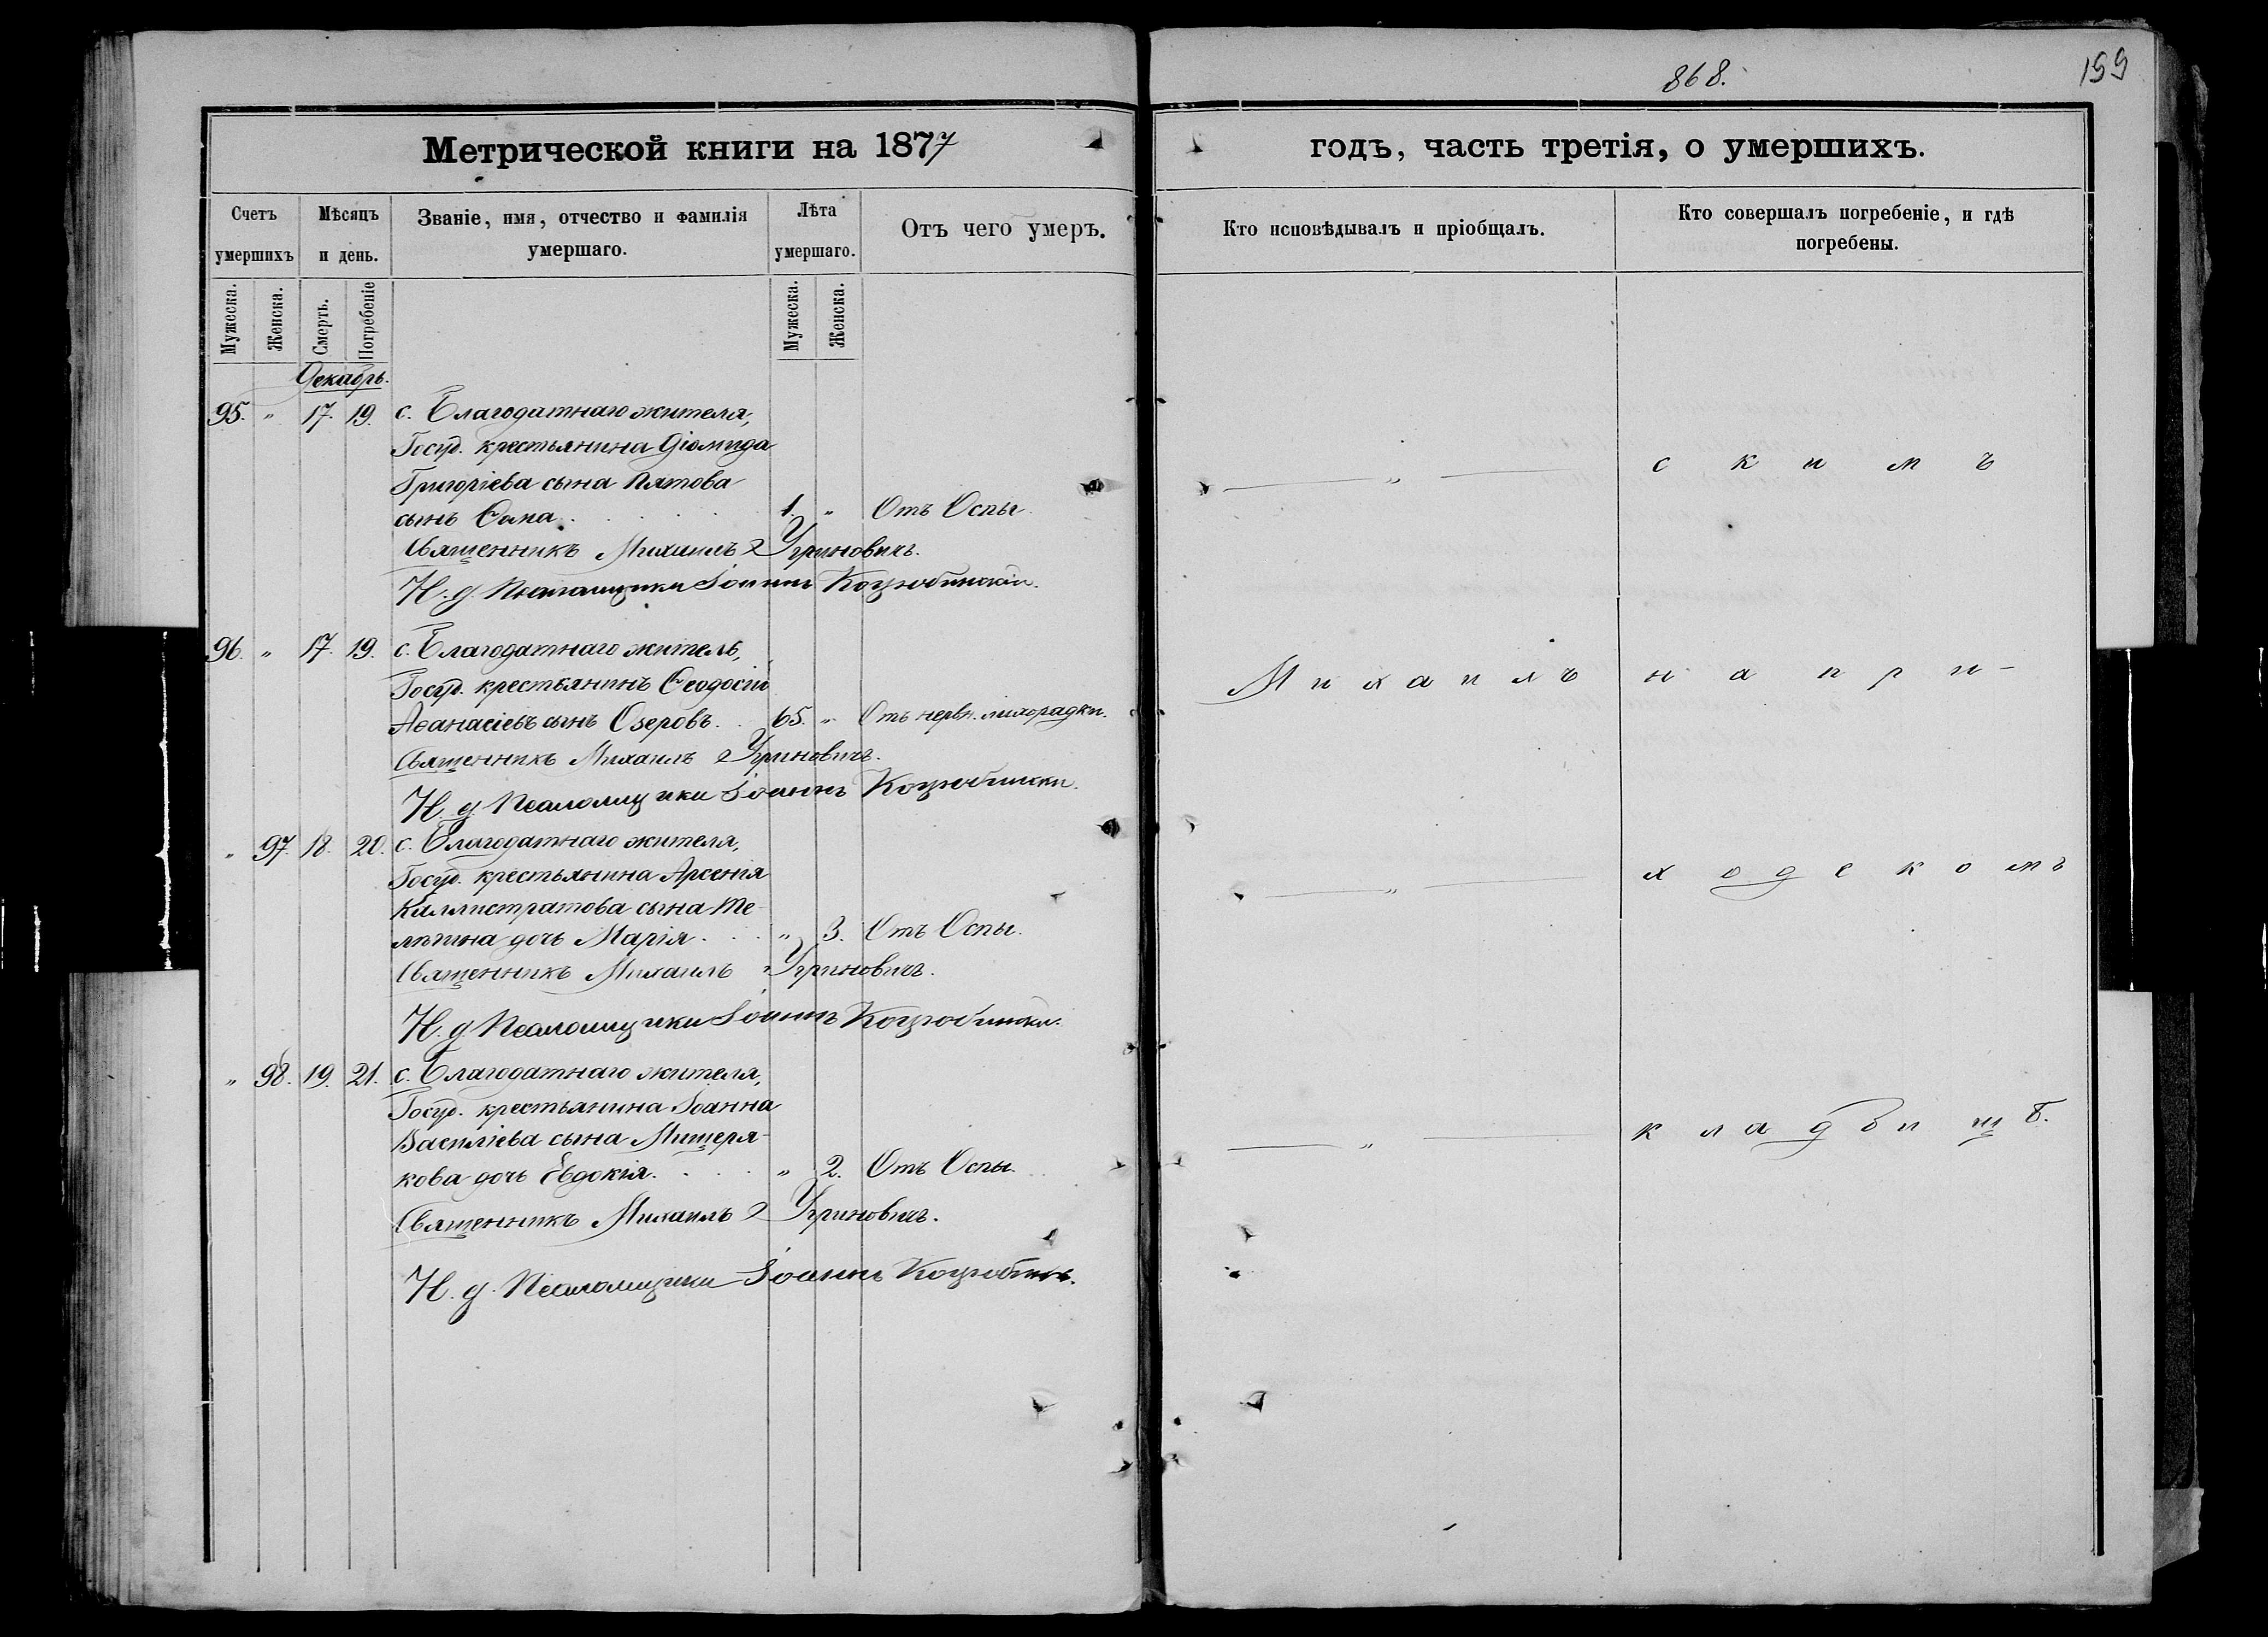 868.
199
Метрической книги на 1877
годъ, часть третія, о умершихъ.
Счетъ умершихъ
Мѣсяцъ и день.
Званіе, имя, отчество и фамилія умершаго.
Лѣта умершаго.
Отъ чего умеръ.
Кто исповѣдывалъ и пріобщалъ.
Кто совершалъ погребеніе, и гдѣ погребены.
Мужеска.
Женска.
Смерть.
Погребеніе
Мужеска.
Женска.
Декабрь.
95. " 17. 19. с. Благодатнаго жителя,
Госуд. крестьянина Діомида
Григоріева сына Пятова
сынъ Ѳома. 1. " Отъ Оспы
Священникъ Михаилъ Угриновичъ.
И. д. Псаломщика Іоаннъ Коцюбинскій.
скимъ
96. " 17. 19. с. Благодатнаго житель,
Госуд. крестьянинъ Ѳеодосій
Аѳанасіевъ сынъ Озеровъ. 65. " Отъ нервн. лихорадки.
Священникъ Михаилъ Угриновичъ.
И. д. Псаломщика Іоаннъ Коцюбински
Михаилъ на при-
" 97. 18. 20. с. Благодатнаго жителя,
Госуд. крестьянина Арсенія
Каллистратова сына Те-
дочь Марія. " 3. Отъ Оспы.
Священникъ Михаилъ Угриновичъ.
И. д. Псаломщика Іоаннъ Коцюбински.
ходскомъ
" 98. 19. 21. с. Благодатнаго жителя,
Госуд. крестьянина Іоанна
Василіева сына Мищеря-
кова дочь Евдокія. " 2. Отъ Оспы.
Священникъ Михаилъ Угриновичъ.
И. д. Псаломщика Іоаннъ
кладбищѣ.